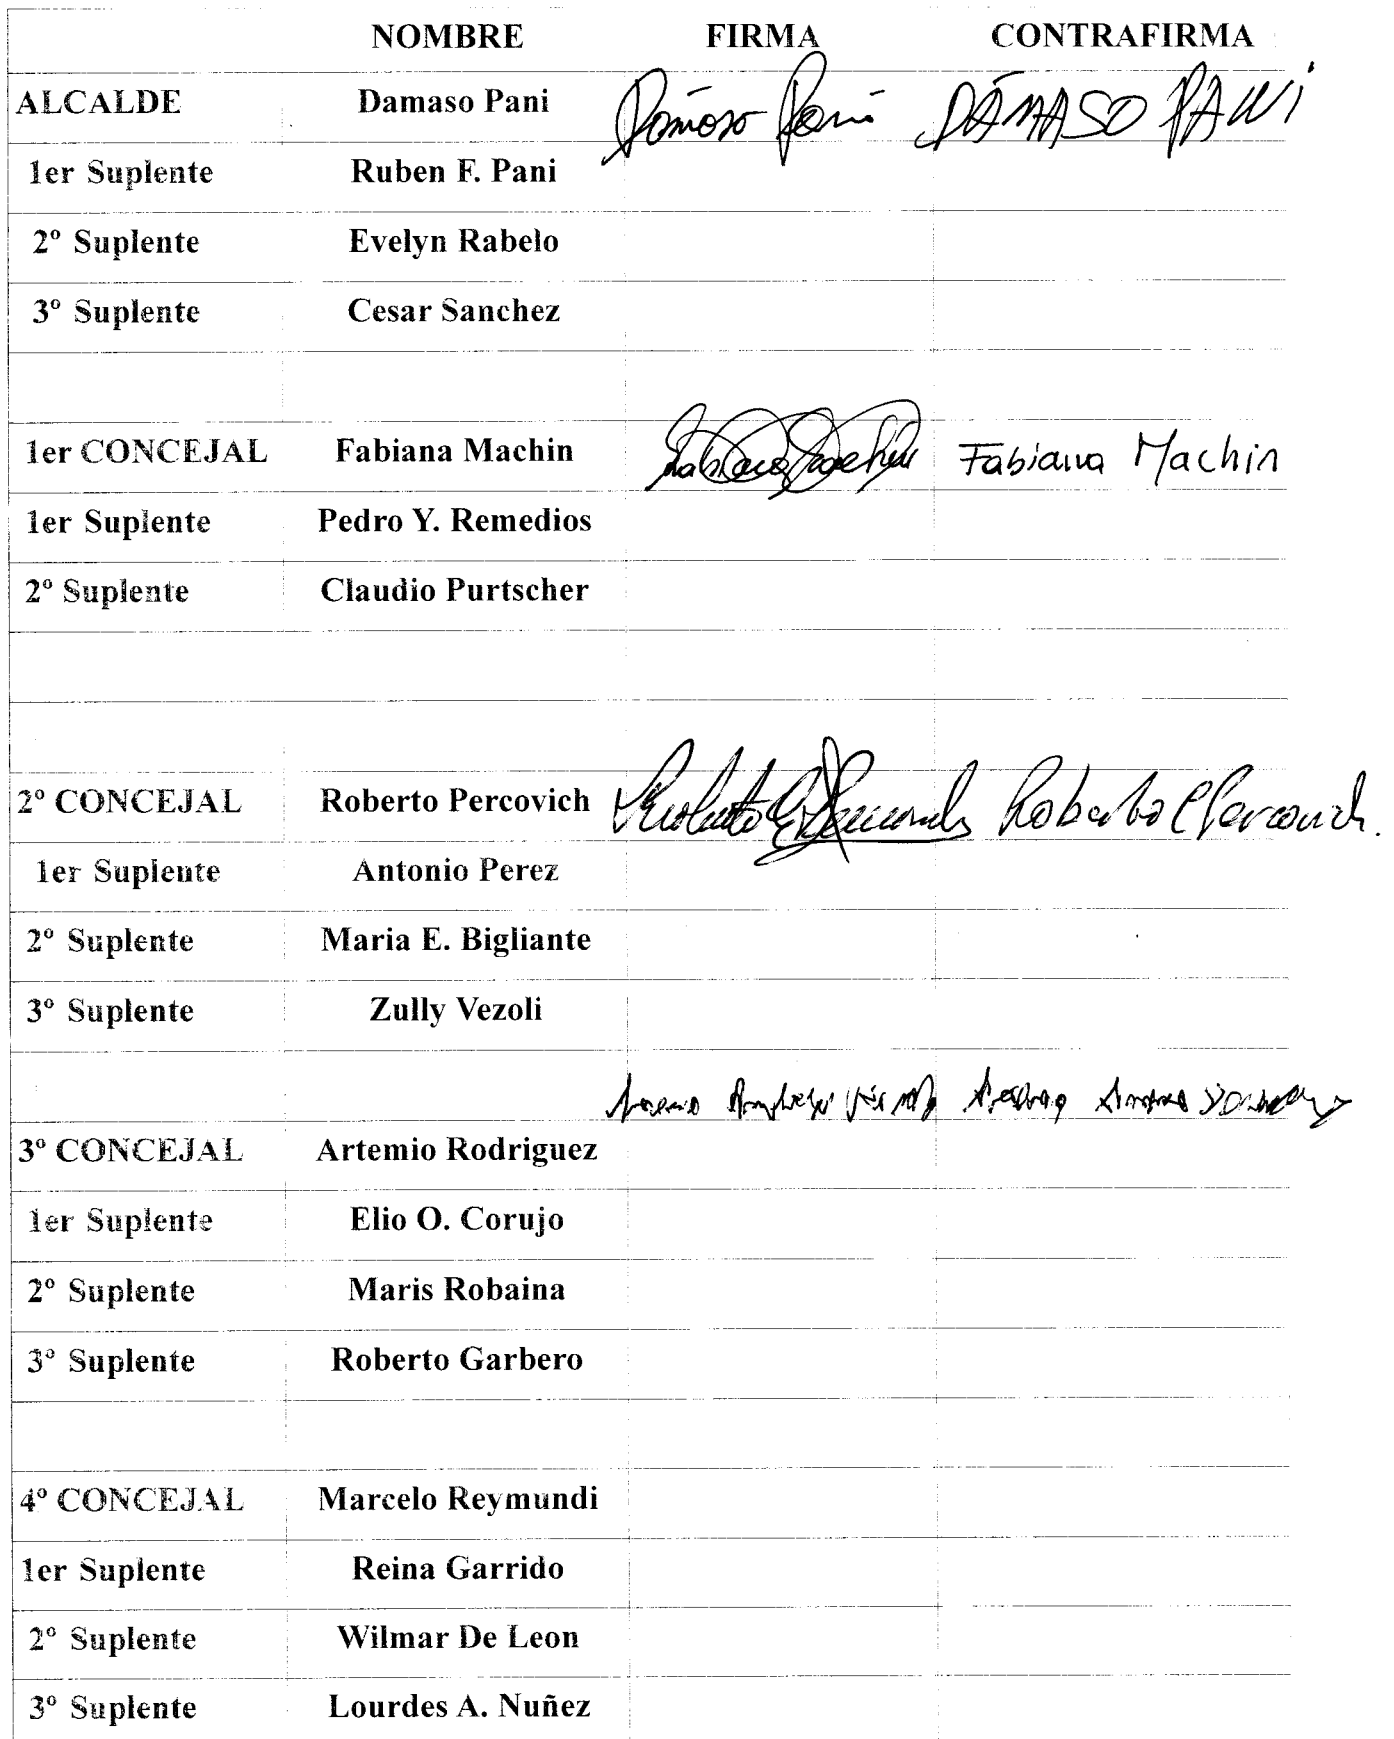 NOMBRE FIRMA CONTRAFIRMA
ALCALDE Damaso Pani Dámaso Pani DÁMASO PANI
1er Suplente Ruben F. Pani
2º Suplente Evelyn Rabelo
3º Suplente Cesar Sanchez
1er CONCEJAL Fabiana Machin Fabiana Machin Fabiana Machin
1er Suplente Pedro Y. Remedios
2º Suplente Claudio Purtscher
2º CONCEJAL Roberto Percovich Roberto Percovich
1er Suplente Antonio Perez
2º Suplente Maria E. Bigliante
3º Suplente Zully Vezoli
3º CONCEJAL Artemio Rodriguez
1er Suplente Elio O. Corujo
2º Suplente Maris Robaina
3º Suplente Roberto Garbero
4º CONCEJAL Marcelo Reymundi
1er Suplente Reina Garrido
2º Suplente Wilmar De Leon
3º Suplente Lourdes A. Nuñez